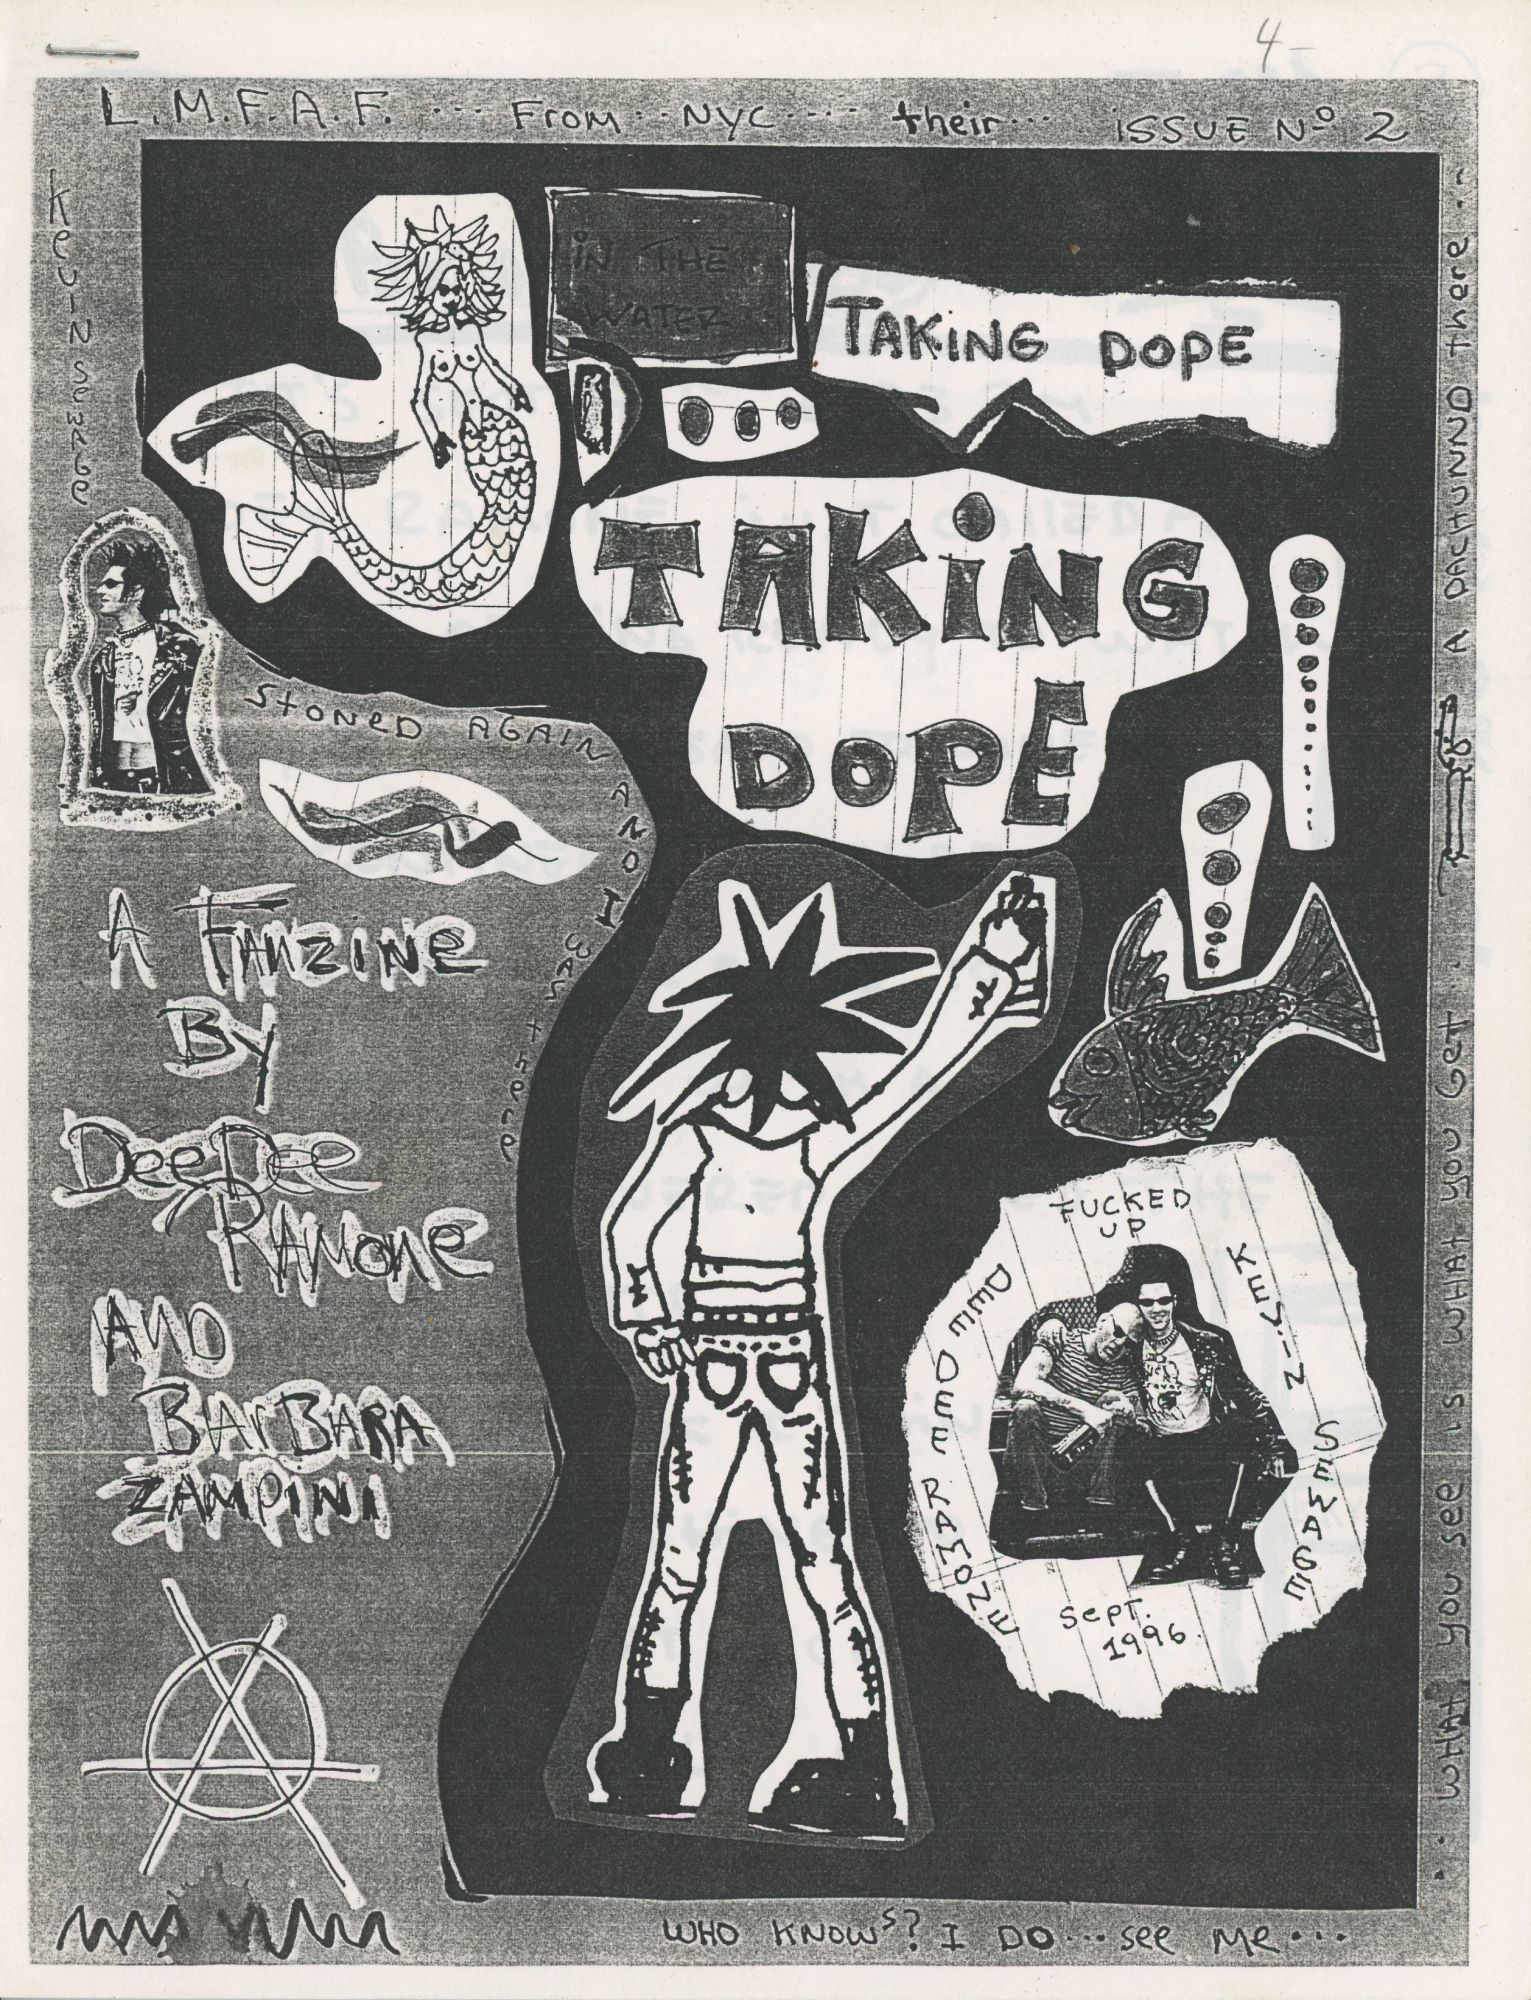 4-
L.M.F.A.F. ... From .. NYC .... their ... ISSUE Nº 2
Kevin Sewage
IN THE
WATER
TAKING DOPE
TAKING
DOPE
STONED AGAIN AND I WAS there
A FANZINE
BY
DeeDee
RAMONE
AND
BARBARA
ZAMPINI
FUCKED
UP
DEE DEE RAMONE
KEVIN SEWAGE
Sept.
1996.
... WHAT you see is WHAT you Get ... A DACHUNND there ...
WHO KNOWS? I DO ... see Me ...